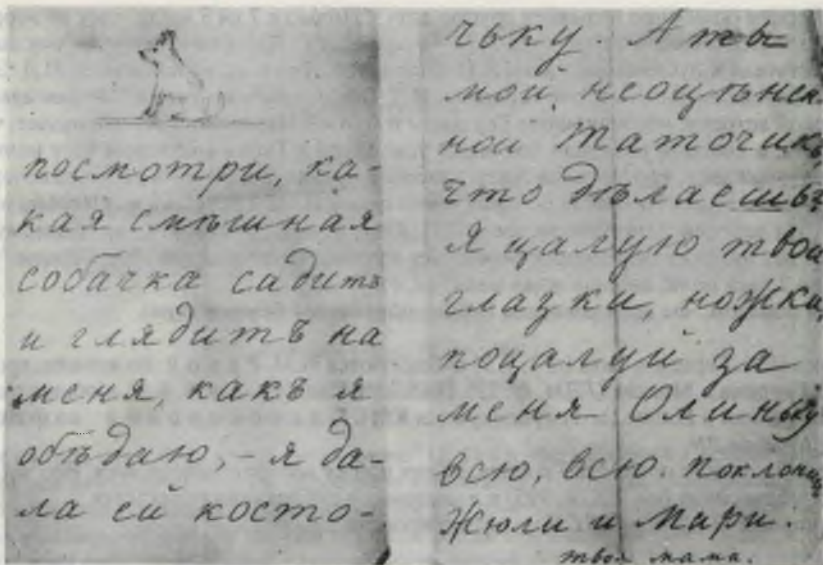 посмотри, ка-
кая смѣшная
собачка садитъ
и глядитъ на
меня, какъ я
обѣдаю, - я да-
ла ей косто-
чьку. А ты
мой, неоцѣнен
ной Таточикъ,
что дѣлаешь?
Я цалую твои
глазки, ножки,
поцалуй за
меня Олиньку
всю, всю. поклонись
Жюли и Мари.
твоя мама.